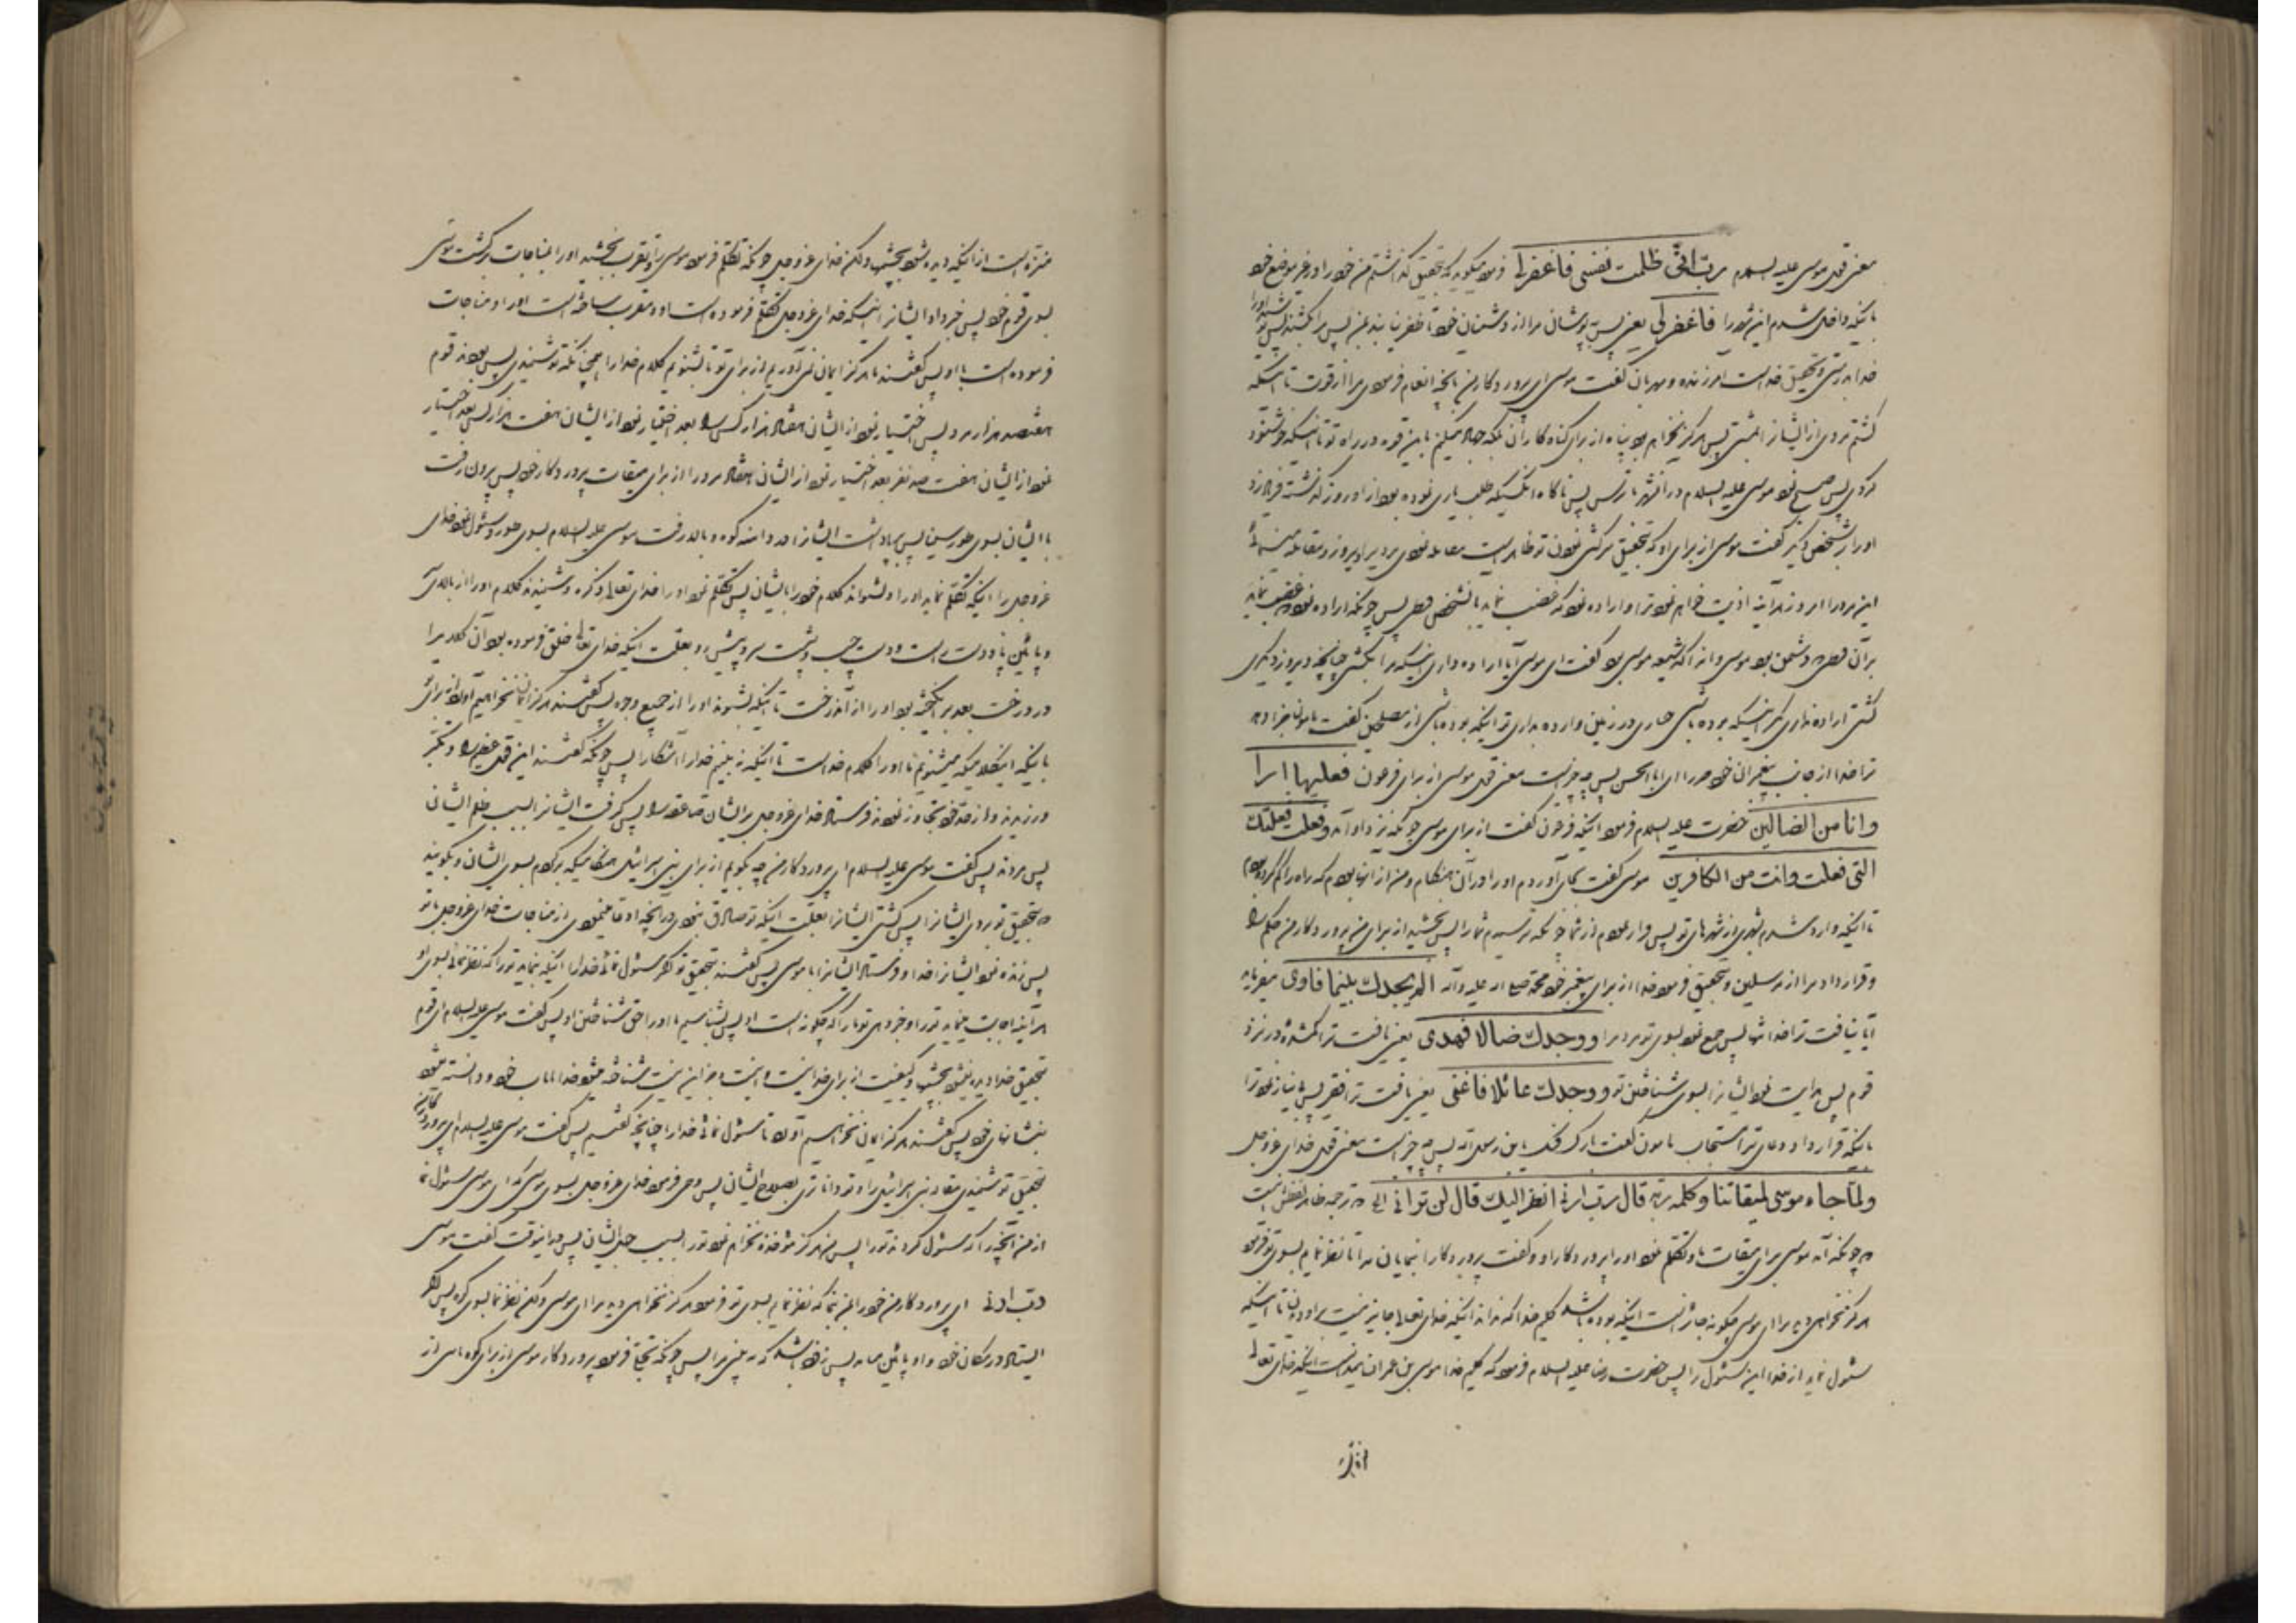 معنی قول موسی علیه السلم رب انی ظلمت نفسی فاغفرلی فرمود میگوید که بتحقیق گذاشتم من خود را در غیر موضع خود
باینکه داخل شدم این شهر را فاغفرلی یعنی پس بپوشان مرا از دشمنان خود تا ظفر نیابند بمن پس مرا بکشند پس
خدا بدرستی و تحقیق خداست آمرزنده و مهربان گفت موسی ای پروردگار من بآنچه انعام فرمودی مرا از قوت تا اینکه
کشتم مردی از ایشان را بمشتی پس هرگز نخواهم بود پناه از برای گناه کاران بلکه جهاد میکنم باین قوه در راه تو تا اینکه خوشنود
گردی پس صبح نمود موسی علیه السلام در آنشهر با ترس پس ناگاه آنکسیکه طلب یاری نموده بود از او روز گذشته فریاد زد
او را بر شخص دیگر گفت موسی از برای او که بتحقیق سرکشی نمودن تو ظاهر است مقاتله نمودی مردیرا دیروز و مقاتله مینمائی
این مرد را امروز هر آینه اذیت خواهم نمود ترا و اراده نمود که غضب نماید بآنشخص پس چونکه اراده نمود غضب نماید
بر آن که دشمن بود موسی و آنرا که شیعه موسی بود گفت ای موسی آیا اراده داری اینکه مرا بکشی چنانچه دیروز دیگری
کشتی اراده نداری مگر اینکه بوده باشی جباری در زمین و اراده نداری تو اینکه بوده باشی از مصلحین گفت مامون جزا دهد
ترا خدا از جانب پیغمبران خود خیر را ای ابا الحسن پس چه چیز است معنی قول موسی از برای فرعون فعلتها اذا
وانا من الضالین حضرت علیه السلام فرمود اینکه فرعون گفت از برای موسی چونکه نزد او آمد وفعلت فعلتک
التی فعلت وانت من الکافرین موسی گفت بجای آوردم او را در آن هنگام و من از آنها بودم که راه را گم کرده
تا اینکه وارد شدم بشهری از شهرهای تو پس فرار نمودم از شما چونکه ترسیدم شما را پس بخشید از برای من پروردگار من حکم را
و قرار داد مرا از مرسلین و بتحقیق فرمود خدا از برای پیغمبر خود محمد صلی الله علیه وآله الم یجدک یتیما فاوی میفرماید
آیا نیافت ترا خدا تنها پس جمع نمود بسوی تو مردم را ووجدک ضالا فهدی یعنی یافت ترا گمشده در نزد
قوم پس هدایت نمود ایشان را بسوی شناختن تو ووجدک عائلا فاغنی یعنی یافت ترا فقیر پس بی نیاز نمود ترا
باینکه قرار داد دعای ترا مستجاب مامون گفت بارک الله فیک یابن رسول الله پس چه چیز است معنی قول خدای عزوجل
ولما جاء موسی لمیقاتنا وکلمه ربه قال رب ارنی انظر الیک قال لن ترانی الخ که ترجمه ظاهر لفظش اینست
که چونکه آمد موسی برای میقات ما و تکلم نمود او را پروردگار او و گفت پروردگارا بنمایان مرا تا نظر نمایم بسوی تو فرمود
هرگز نخواهی دید مرا ای موسی چگونه جائز است اینکه بوده باشد کلیم خدا که نداند اینکه خدای تعالی جایز نیست بر او دیدن تا اینکه
سئوال نماید از خدا این سئوال را پس حضرت رضا علیه السلام فرمود که کلیم خدا موسی بن عمران میدانست اینکه خدای تعالی
منزه است از اینکه دیده شود بچشم ولکن خدای عزوجل چونکه تکلم فرمود موسی را و تقرب بخشید او را بمناجات برگشت موسی
بسوی قوم خود پس خبر داد ایشان را اینکه خدای عزوجل تکلم فرموده است او را و مقرب ساخته است او را و مناجات
فرموده است با او پس گفتند ما هرگز ایمان نمی آوریم از برای تو تا بشنویم کلام خدا را همچنانکه تو شنیدی پس بودند قوم
هفتصد هزار مرد پس اختیار نمود از ایشان هفتاد هزار کس را بعد اختیار نمود از ایشان هفت هزار پس بعد اختیار
نمود از ایشان هفت صد نفر بعد اختیار نمود از ایشان هفتاد مرد را از برای میقات پروردگار خود پس بیرون رفت
با ایشان بسوی طور سینا پس بپا داشت ایشان را در دامنه کوه و بالا رفت موسی علیه السلام بسوی طور و سئوال نمود خدای
عزوجل را اینکه تکلم نماید او را و بشنواند کلام خود را بایشان پس تکلم نمود او را خدای تعالی ذکره و شنیدند کلام او را از بالای سر
و پائین پا و دست راست و دست چپ و پشت سر و پیش رو بعلت اینکه خدای تعالی خلق فرموده بود آن کلام را
در درخت بعد برانگیخته بود او را از آندرخت تا اینکه بشنوند او را از جمیع وجوه پس گفتند هرگز ایمان نخواهیم آورد از برای
باینکه اینکلامیکه میشنویم ما او را کلام خداست تا اینکه ببینیم خدا را آشکارا پس چونکه گفتند این قول عظیم را و تکبر
ورزیدند و از حد خود تجاوز نمودند فرستاد خدای عزوجل بر ایشان صاعقه را پس گرفت ایشان را بسبب ظلم ایشان
پس مردند پس گفت موسی علیه السلام ای پروردگار من چه بگویم از برای بنی اسرائیل هنگامیکه برگردم بسوی ایشان و بگویند
که بتحقیق تو بردی ایشان را پس کشتی ایشان را بعلت اینکه تو صادق نبودی در آنچه ادعا مینمودی از مناجات خدای عزوجل با تو
پس زنده نمود ایشان را خدا و فرستاد ایشان را با موسی پس گفتند بتحقیق تو اگر سئوال نمائی خدا را اینکه بنماید تو را که نظر نمائی بسوی او
هر آینه اجابت مینماید تو را و خبر دهی تو ما را که چگونه است او پس بشناسیم ما او را حق شناختن او پس گفت موسی علیه السلام ای قوم
بتحقیق خدا دیده نمیشود بچشم و کیفیت از برای خدا نیست و اینست و جز این نیست شناخته میشود خدا بآیات خود و دانسته میشود
بنشانهای خود پس گفتند هرگز ایمان نخواهیم آورد تا سئوال نمائی خدا را چنانچه گفتیم پس گفت موسی علیه السلام ای پروردگار من
بتحقیق تو شنیدی مقاله بنی اسرائیل را و تو داناتری بصلاح ایشان پس وحی فرمود خدای عزوجل بسوی موسی که ای موسی سئوال نما
از من آنچه را که سئوال کردند تو را پس من هرگز مؤاخذه نخواهم نمود تو را بسبب جهل ایشان پس در اینوقت گفت موسی
رب ارنی ای پروردگار من خود را بمن بنما که نظر نمایم بسوی تو فرمود هرگز نخواهی دید مرا ای موسی ولکن نظر نما بسوی کوه پس اگر
ایستاد در مکان خود و او پائین میاید پس زود باشد که ببینی مرا پس چونکه تجلی فرمود پروردگار موسی از برای کوه بآیتی از